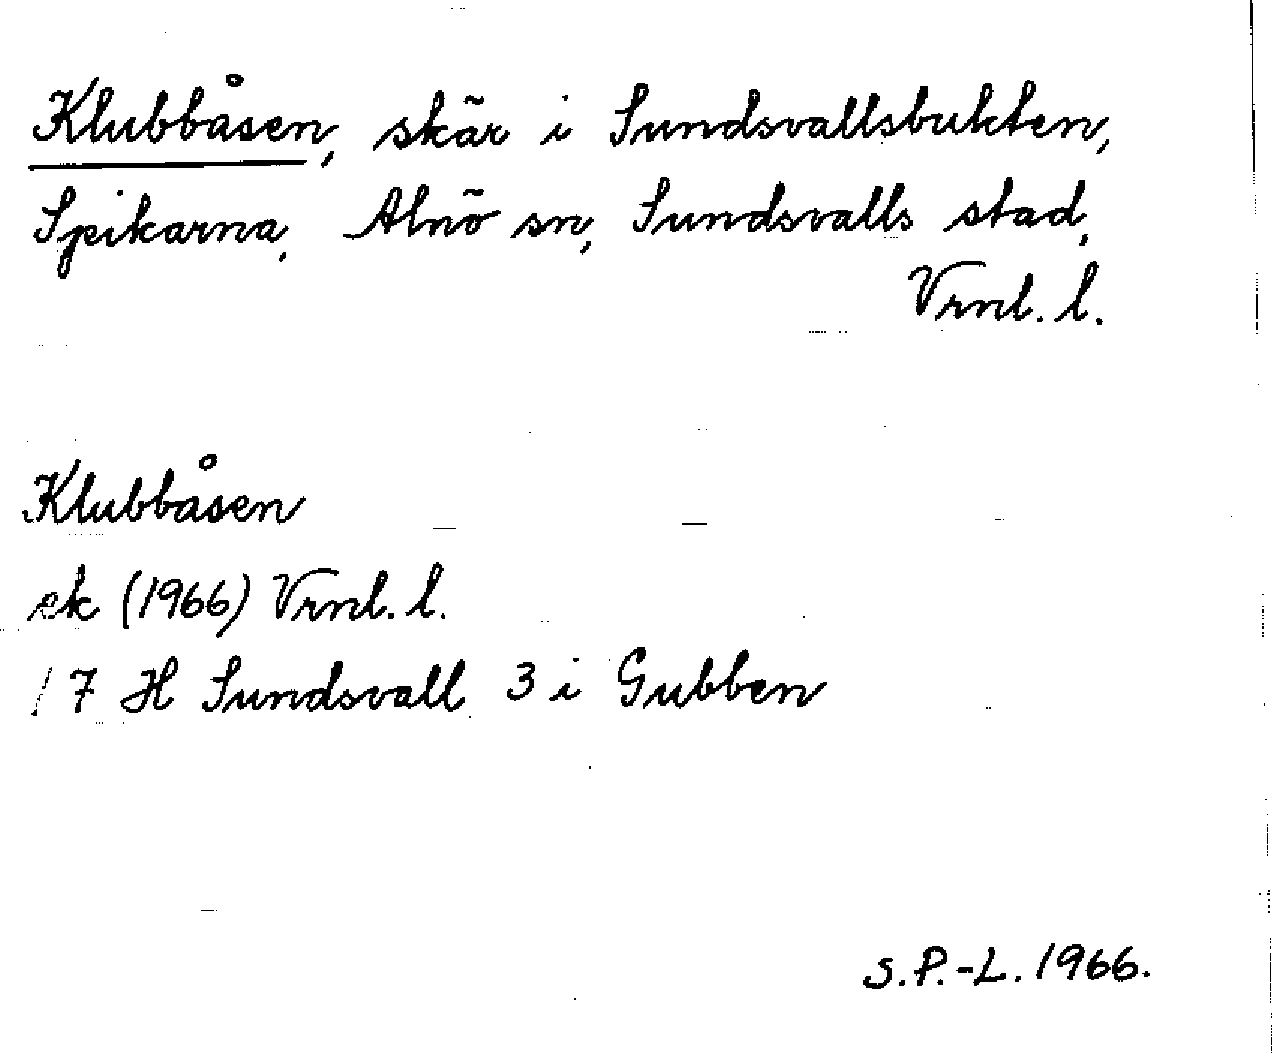 Klubbåsen, skär i Sundsvallsbukten,
Spikarna, Alnö sn, Sundsvalls stad,
Vrnl. l.
Klubbåsen
ek (1966) Vrnl. l.
17 H Sundsvall 3 i Gubben
S.P.-L. 1966.